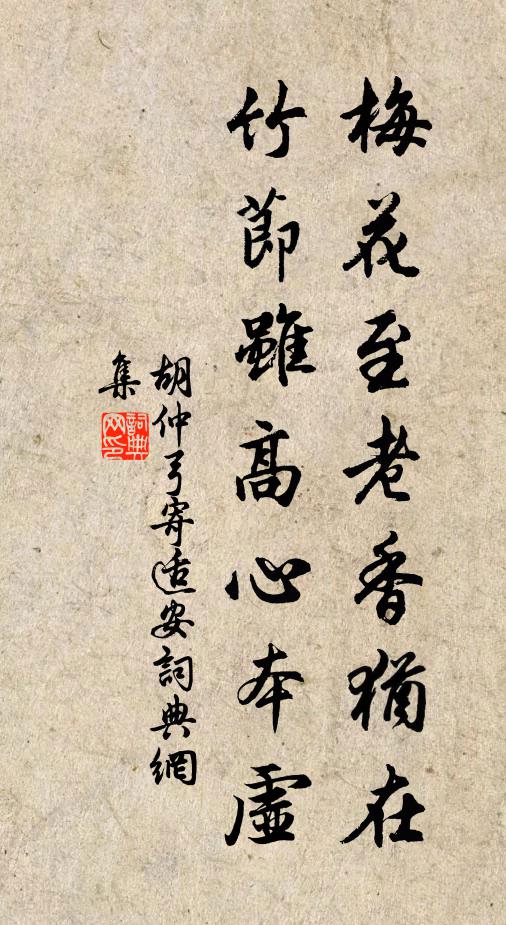 梅花至老香猶在
竹節雖高心本虛
胡仲弓寄适安詞典網
集
詞典网印